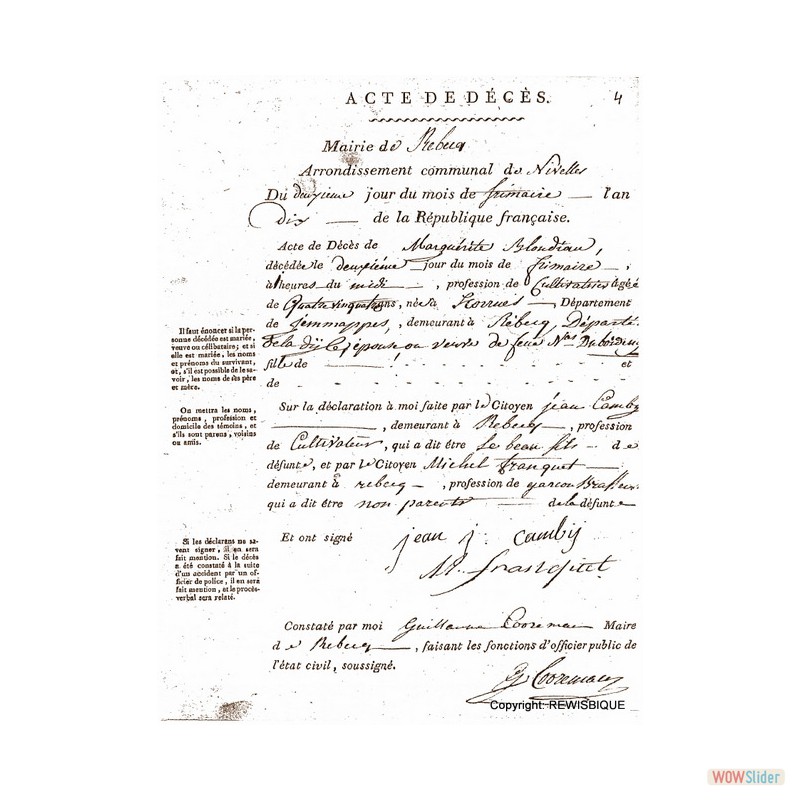 ACTE DE DÉCÈS. 4
Mairie de Rebecq
Arrondissement communal de Nivelles
Du deuxieme jour du mois de frimaire — l'an
Dix — de la République française.
Acte de Décès de Marguérite Blondiau,
décédée le deuxiéme jour du mois de frimaire —,
à heures du midi —, profession de Cultivatrice âgée
de Quatrevingt ans, née à Horrues — Département
de jemmappes, demeurant à Rebecq, Départe.
de la dÿle, épouse ou veuve de feue Nlas
fille de — et
de
Il faut énoncer si la per-
sonne décédée est mariée,
veuve ou célibataire; et si
elle est mariée, les noms
et prénoms du survivant,
et, s'il est possible de le sa-
voir, les noms de ses père
et mère.
Sur la déclaration à moi faite par le Citoyen jean Camby
—, demeurant à Rebecq —, profession
de Cultivateur, qui a dit être le beau fils — de
défunte, et par le Citoyen Michel franquet —
demeurant à rebecq —, profession de garcon Brasseur
qui a dit être non parents — de la défunte
On mettra les noms,
prénoms, profession et
domicile des témoins, et
s'ils sont parens, voisins
ou amis.
Et ont signé jean j. Cambÿ
M. franquet
Si les déclarans ne sa-
vent signer, il en sera
fait mention. Si le décès
a été constaté à la suite
d'un accident par un of-
ficier de police, il en sera
fait mention, et le procès-
verbal sera relaté.
Constaté par moi Guillaume Cooreman Maire
de Rebecq —, faisant les fonctions d'officier public de
l'état civil, soussigné.
G Cooreman
Copyright: REWISBIQUE
WOWSlider